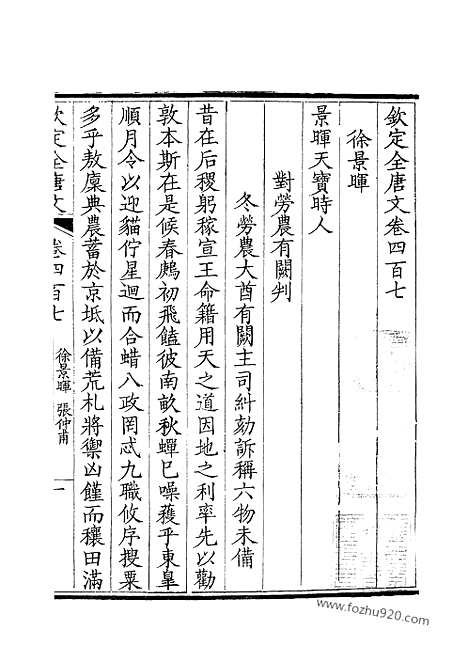 欽定全唐文卷四百七
徐景暉
景暉天寶時人
對勞農有闕判
冬勞農大酋有闕主司糾劾訴稱六物未備
昔在后稷躬稼宣王命籍用天之道因地之利率先以勸
敦本斯在是候春鳸初飛饁彼南畝秋蟬已噪穫乎東臯
順月令以迎貓佇星迴而合蜡八政罔忒九職攸序搜粟
多乎敖廩典農蓄於京坻以備荒札將禦凶饉而穰田滿
欽定全唐文
卷四百七
徐景暉 張仲甫
一
www.fozhu920.com